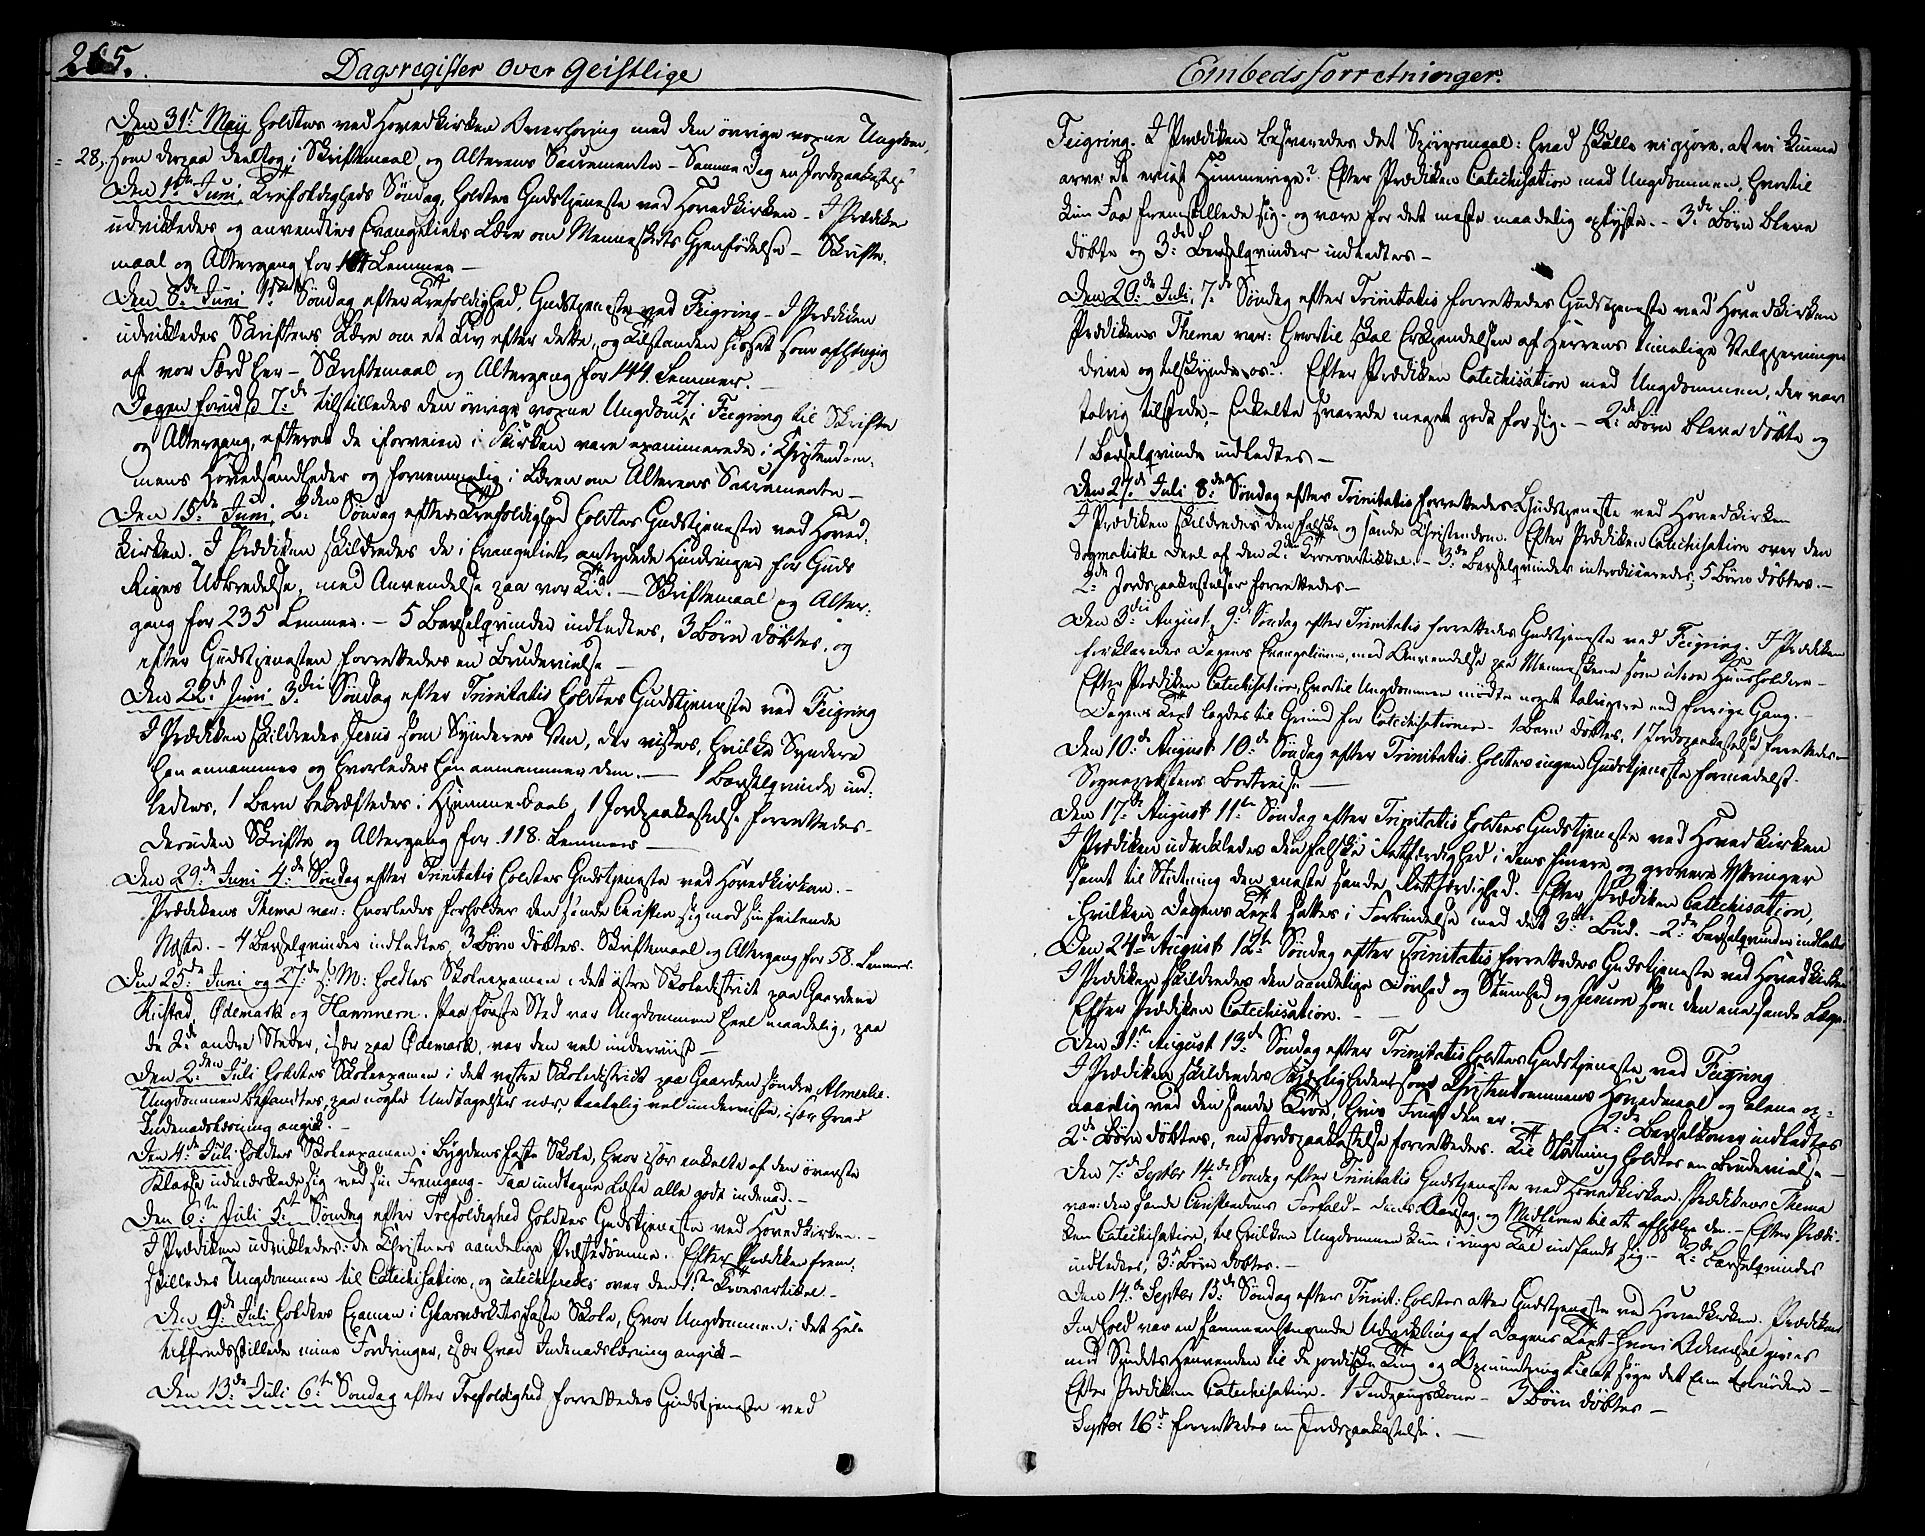 265.
Dagsregister over Geistlige
Den 31te Maij holdtes ved Hovedkirken Overhøring med den øvrige voxne Ungdom,
28, som derpaa deeltog i Skriftemaal og Alterens Sacramente – Samme Dag en Jordpaakastelse
Den 1ste Juni, Trefoldigheds Søndag, holdtes Gudstjeneste ved Hovedkirken – I Prædiken
udvikledes og anvendtes Evangeliets Lære om Menneskets Gjenfødelse – Skrifte-
maal og Altergang for Lemmer –
Den 8de Juni 1ste Søndag efter Trefoldighed, Gudstjeneste ved Feigring – I Prædiken
udvikledes Skriftens Lære om et Liv efter dette, og Tilstanden hisset som afhængig
af vor Færd her – Skriftemaal og Altergang for 144 Lemmer. –
Dagen forud d 7de tilstilledes den øvrige voxne Ungdom, 27 i Feigring til Skrifte
og Altergang, efterat de iforveien i Kirken vare examinerede i Christendom-
mens Hovedsandheder og fornemmelig i Læren om Alterens Sacramente –
Den 15de Juni, 2den Søndag efter Trefoldighed holdtes Gudstjeneste ved Hoved-
kirken. I Prædiken skildredes de i Evangeliet antydede Hindringer for Guds
Riges Udbredelse, med Anvendelse paa vor Tid. – Skriftemaal og Alter-
gang for 235 Lemmer. – 5 Barselqvinder indledtes, 3 Børn døbtes, og
efter Gudstjenesten forrettedes en Brudevielse –
Den 22de Juni 3die Søndag efter Trinitatis holdtes Gudstjeneste ved Feigring
I Prædiken skildredes Jesus som Synderes Ven, der vistes, hvilke Syndere
han annammer og hvorledes han annammer dem. – 1 Barselqvinde ind-
ledtes, 1 Barn bekræftedes i Hjemmedaab, 1 Jordpaakastelse forrettedes –
Desuden Skrifte og Altergang for 118 Lemmer –
Den 29de Juni 4de Søndag efter Trinitatis holdtes Gudstjeneste ved Hovedkirken. –
Prædikens Thema var: Hvorledes forholder den sande Christen sig mod sin feilende
Næste. – 4 Barselqvinder indledtes, 3 Børn døbtes. Skriftemaal og Altergang for 58 Lemmer.
Den 25de Juni og 27de s: M: holdtes Skoleexamen i det østre Skoledistrict paa Gaardene
Ristad, Ødemark og Hammern. Paa første Sted var Ungdommen heel maadelig, paa
de 2de andre Steder, især paa Ødemark, var den vel underviist –
Den 2den Juli holdtes Skoleexamen i det vestre Skoledistrict paa Gaarden søndre Almerke.
Ungdommen befandtes, paa nogle Undtagelser nær, taalelig vel underviist, især hvad
Indenadslæsning angik. –
Den 4de Juli holdtes Skoleexamen i Bygdens faste Skole, hvor især enkelte af den øverste
Klasse udmærkede sig ved sin Fremgang. Faa undtagne læste alle godt indenad. –
Den 6te Juli 5te Søndag efter Trefoldighed holdtes Gudstjeneste ved Hovedkirken. –
I Prædiken udvikledes: de Christnes aandelige Præstedømme. Efter Prædiken frem-
stilledes Ungdommen til Catechisation, og catechiseredes over den 1ste Troesartikel –
Den 9de Juli holdtes Examen i Glasværkets faste Skole, hvor Ungdommen i det Hele
tilfredsstillede mine Fordringer, især hvad Indenadslæsning angik –
Den 13de Juli 6te Søndag efter Trefoldighed forrettedes Gudstjeneste ved
Embedsforretninger.
Feigring. I Prædiken besvaredes det Spørgsmaal: hvad skulle vi gjøre, at vi kunne
arve et evigt Himmerige? Efter Prædiken Catechisation med Ungdommen, hvortil
kun Faa fremstillede sig og vare for det meste maadelig oplyste. – 3de Børn bleve
døbte og 3de Barselqvinder indledtes –
Den 20de Juli, 7de Søndag efter Trinitatis forrettedes Gudstjeneste ved Hovedkirken
Prædikens Thema var: hvortil skal Erkjendelsen af Herrens timelige Velgjerninger
drive og tilskynde os? Efter Prædiken Catechisation med Ungdommen, der var
talrig tilstede. – Enkelte svarede meget godt for sig. – 2de Børn bleve døbte og
1 Barselqvinde indledtes –
Den 27de Juli 8de Søndag efter Trinitatis forrettedes Gudstjeneste ved Hovedkirken
I Prædiken skildredes den falske og sande Christendom. Efter Prædiken Catechisation over den
dogmatiske Deel af den 2den Troesartikkel. – 3de Barselqvinder introduceredes, 5 Børn døbtes. –
2de Jordpaakastelser forrettedes –
Den 3die August, 9de Søndag efter Trinitatis forrettedes Gudstjeneste ved Feigring. I Prædiken
forklaredes Dagens Evangelium, med Anvendelse paa Menneskene som utroe Huusholdere –
Efter Prædiken Catechisation, hvortil Ungdommen mødte noget talrigere end forrige Gang. –
Dagens Text lagdes til Grund for Catechisationen – 1 Barn døbtes, 1 Jordpaakastelse forrettedes –
Den 10de August 10de Søndag efter Trinitatis holdtes ingen Gudstjeneste formedelst
Sognepræstens Bortreise –
Den 17de August 11te Søndag efter Trinitatis holdtes Gudstjeneste ved Hovedkirken
I Prædiken udvikledes den falske Retfærdighed i dens finere og grovere Yttringer
samt til Slutning den eneste sande Retfærdighed. Efter Prædiken Catechisation,
hvilken Dagens Text sattes i Forbindelse med det 3die Bud. – 2de Barselqvinder indledtes
Den 24de August 12te Søndag efter Trinitatis forrettedes Gudstjeneste ved Hovedkirken
I Prædiken skildredes den aandelige Døvhed og Stumhed og Jesum som den ene sande Læge.
Efter Prædiken Catechisation. –
Den 31te August 13de Søndag efter Trinitatis holdtes Gudstjeneste ved Feigring
I Prædiken skildredes Kjærligheden som Christendommens Hovedmaal og alene op-
naaelig ved den sande Troe, hvis Frugt den er. – 2de Barselkoner indledtes
2de Børn døbtes, en Jordpaakastelse forrettedes. Til Slutning holdtes en Brudevielse –
Den 7de Septbr 14de Søndag efter Trinitatis Gudstjeneste ved Hovedkirken. Prædikens Thema
var: den sande Christendoms Forfald – dens Aarsag og Midlerne til at afhjelpe den. – Efter Prædi-
ken Catechisation, til hvilken Ungdommen kun i ringe Tal indfandt sig. – 2de Barselqvinder
indledtes, 3de Børn døbtes. –
Den 14de Septbr 15de Søndag efter Trinit: holdtes atter Gudstjeneste ved Hovedkirken. Prædikens
Indhold var en sammenhængende Udvikling af Dagens Text hvori Advarsel gives
mod Sindets Henvenden til de jordiske Ting og Opmuntring til at søge det Ene Fornødne –
Efter Prædiken Catechisation. 1 Indgangskone – 3 Børn døbtes –
Septbr 16de forrettedes en Jordpaakastelse. –